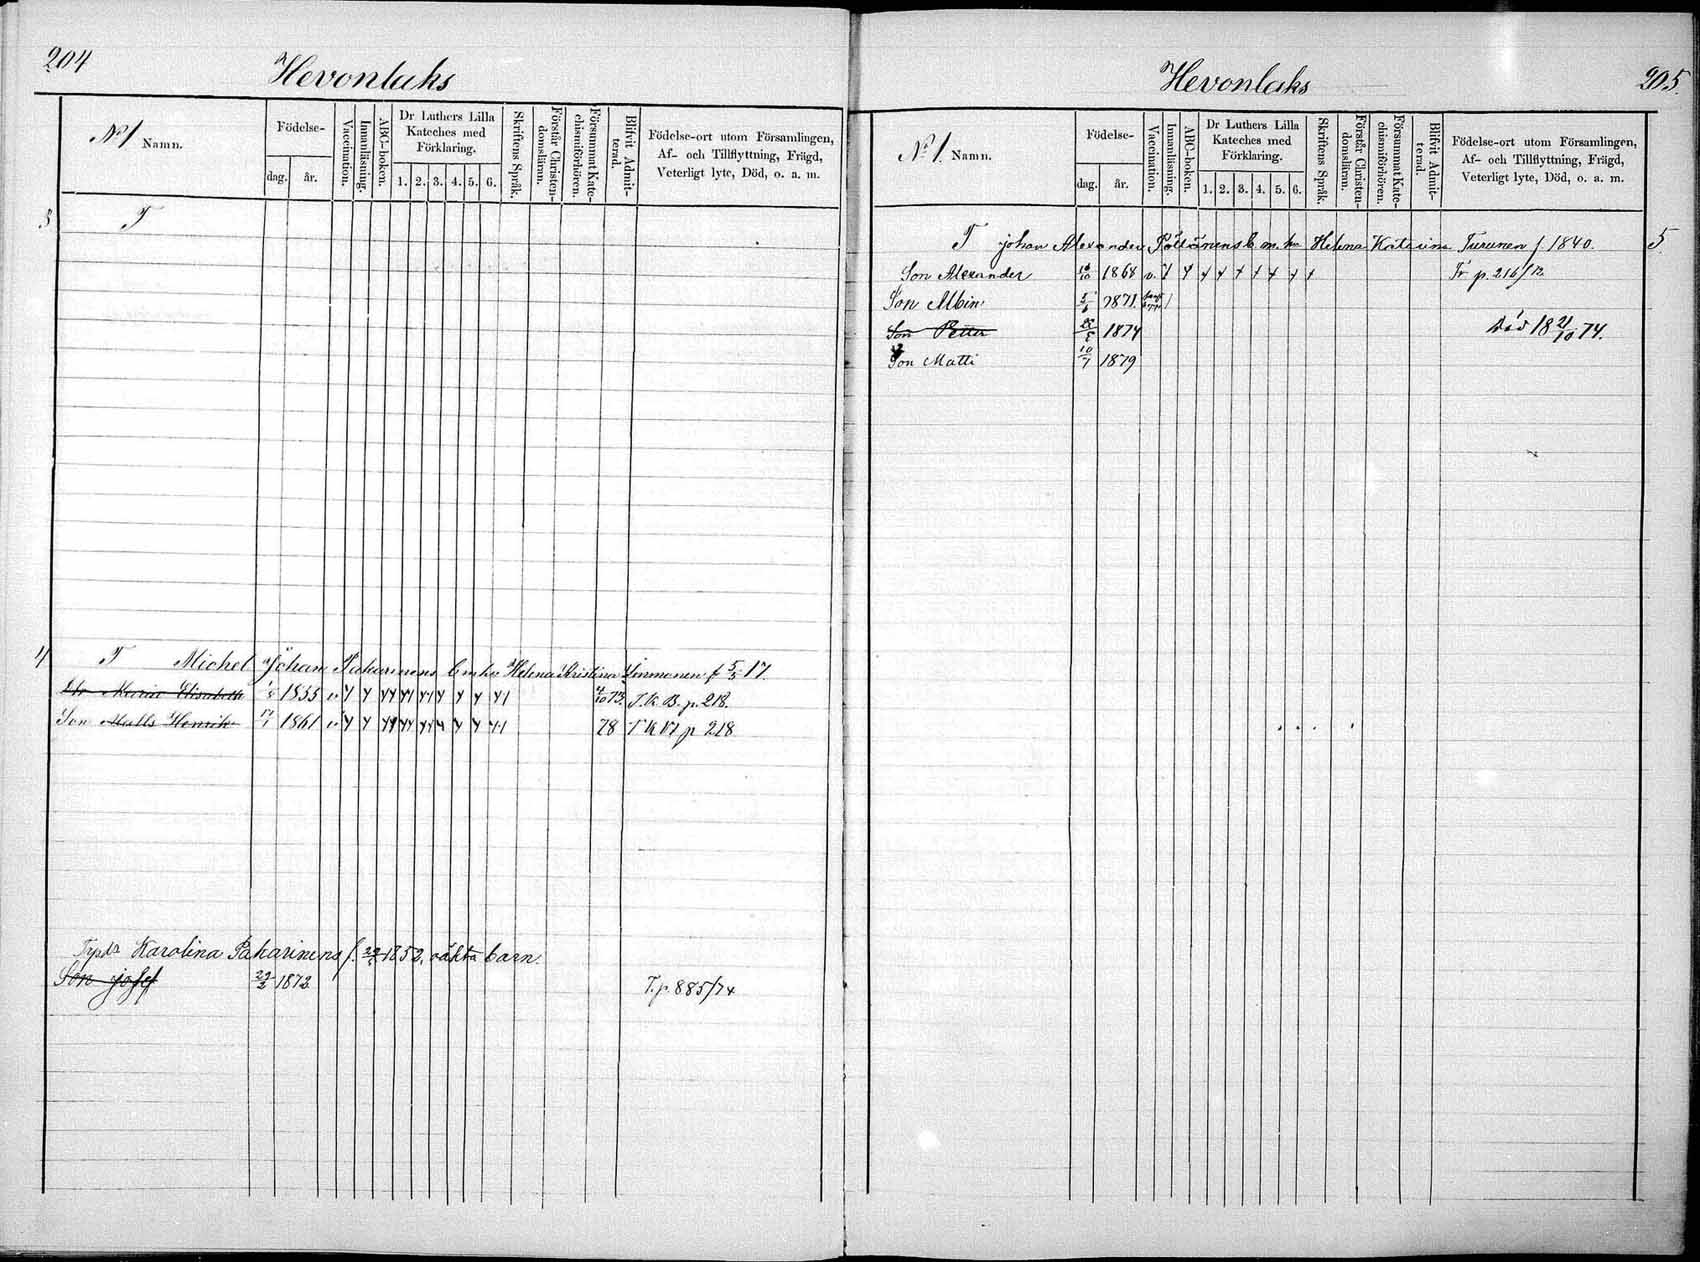 204
Hevonlaks
Nº 1 Namn.
Födelse-
dag. år.
Vaccination.
Innanläsning.
ABC-boken.
Dr Luthers Lilla
Kateches med
Förklaring.
1. 2. 3. 4. 5. 6.
Skriftens Språk.
Förstår Christen-
domslärnn.
Försummat Kate-
chismiförhören.
Blifvit Admit-
terad.
Födelse-ort utom Församlingen,
Af- och Tillflyttning, Frägd,
Veterligt lyte, Död, o. a. m.
3 T
4 T Michel Johan Pakarinens b m hu Helena Kristina Simmonen f 5/5 17.
Dr Maria Elisabeth 1855 v 73. T.K.B. p. 218.
Son Matts Henrik 1861 v 78 T K B p 218
Karolina Pakarinens f. 1852, oäkta barn.
Son josef 1872 T. p. 885/74
Hevonlaks
205.
Nº 1. Namn.
Födelse-
dag. år.
Vaccination.
Innanläsning.
ABC-boken.
Dr Luthers Lilla
Kateches med
Förklaring.
1. 2. 3. 4. 5. 6.
Skriftens Språk.
Förstår Christen-
domslärnn.
Försummat Kate-
chismiförhören.
Blifvit Admit-
terad.
Födelse-ort utom Församlingen,
Af- och Tillflyttning, Frägd,
Veterligt lyte, Död, o. a. m.
T johan Alexander Pöllänens b. m. hu Helena Katarina Turunen f 1840. 5.
Son Alexander 1868 v. p. 216/
Son Albin 5/6 1871.
Son Petter 1874 Död 18 21/10 74.
Son Matti 10/7 1879